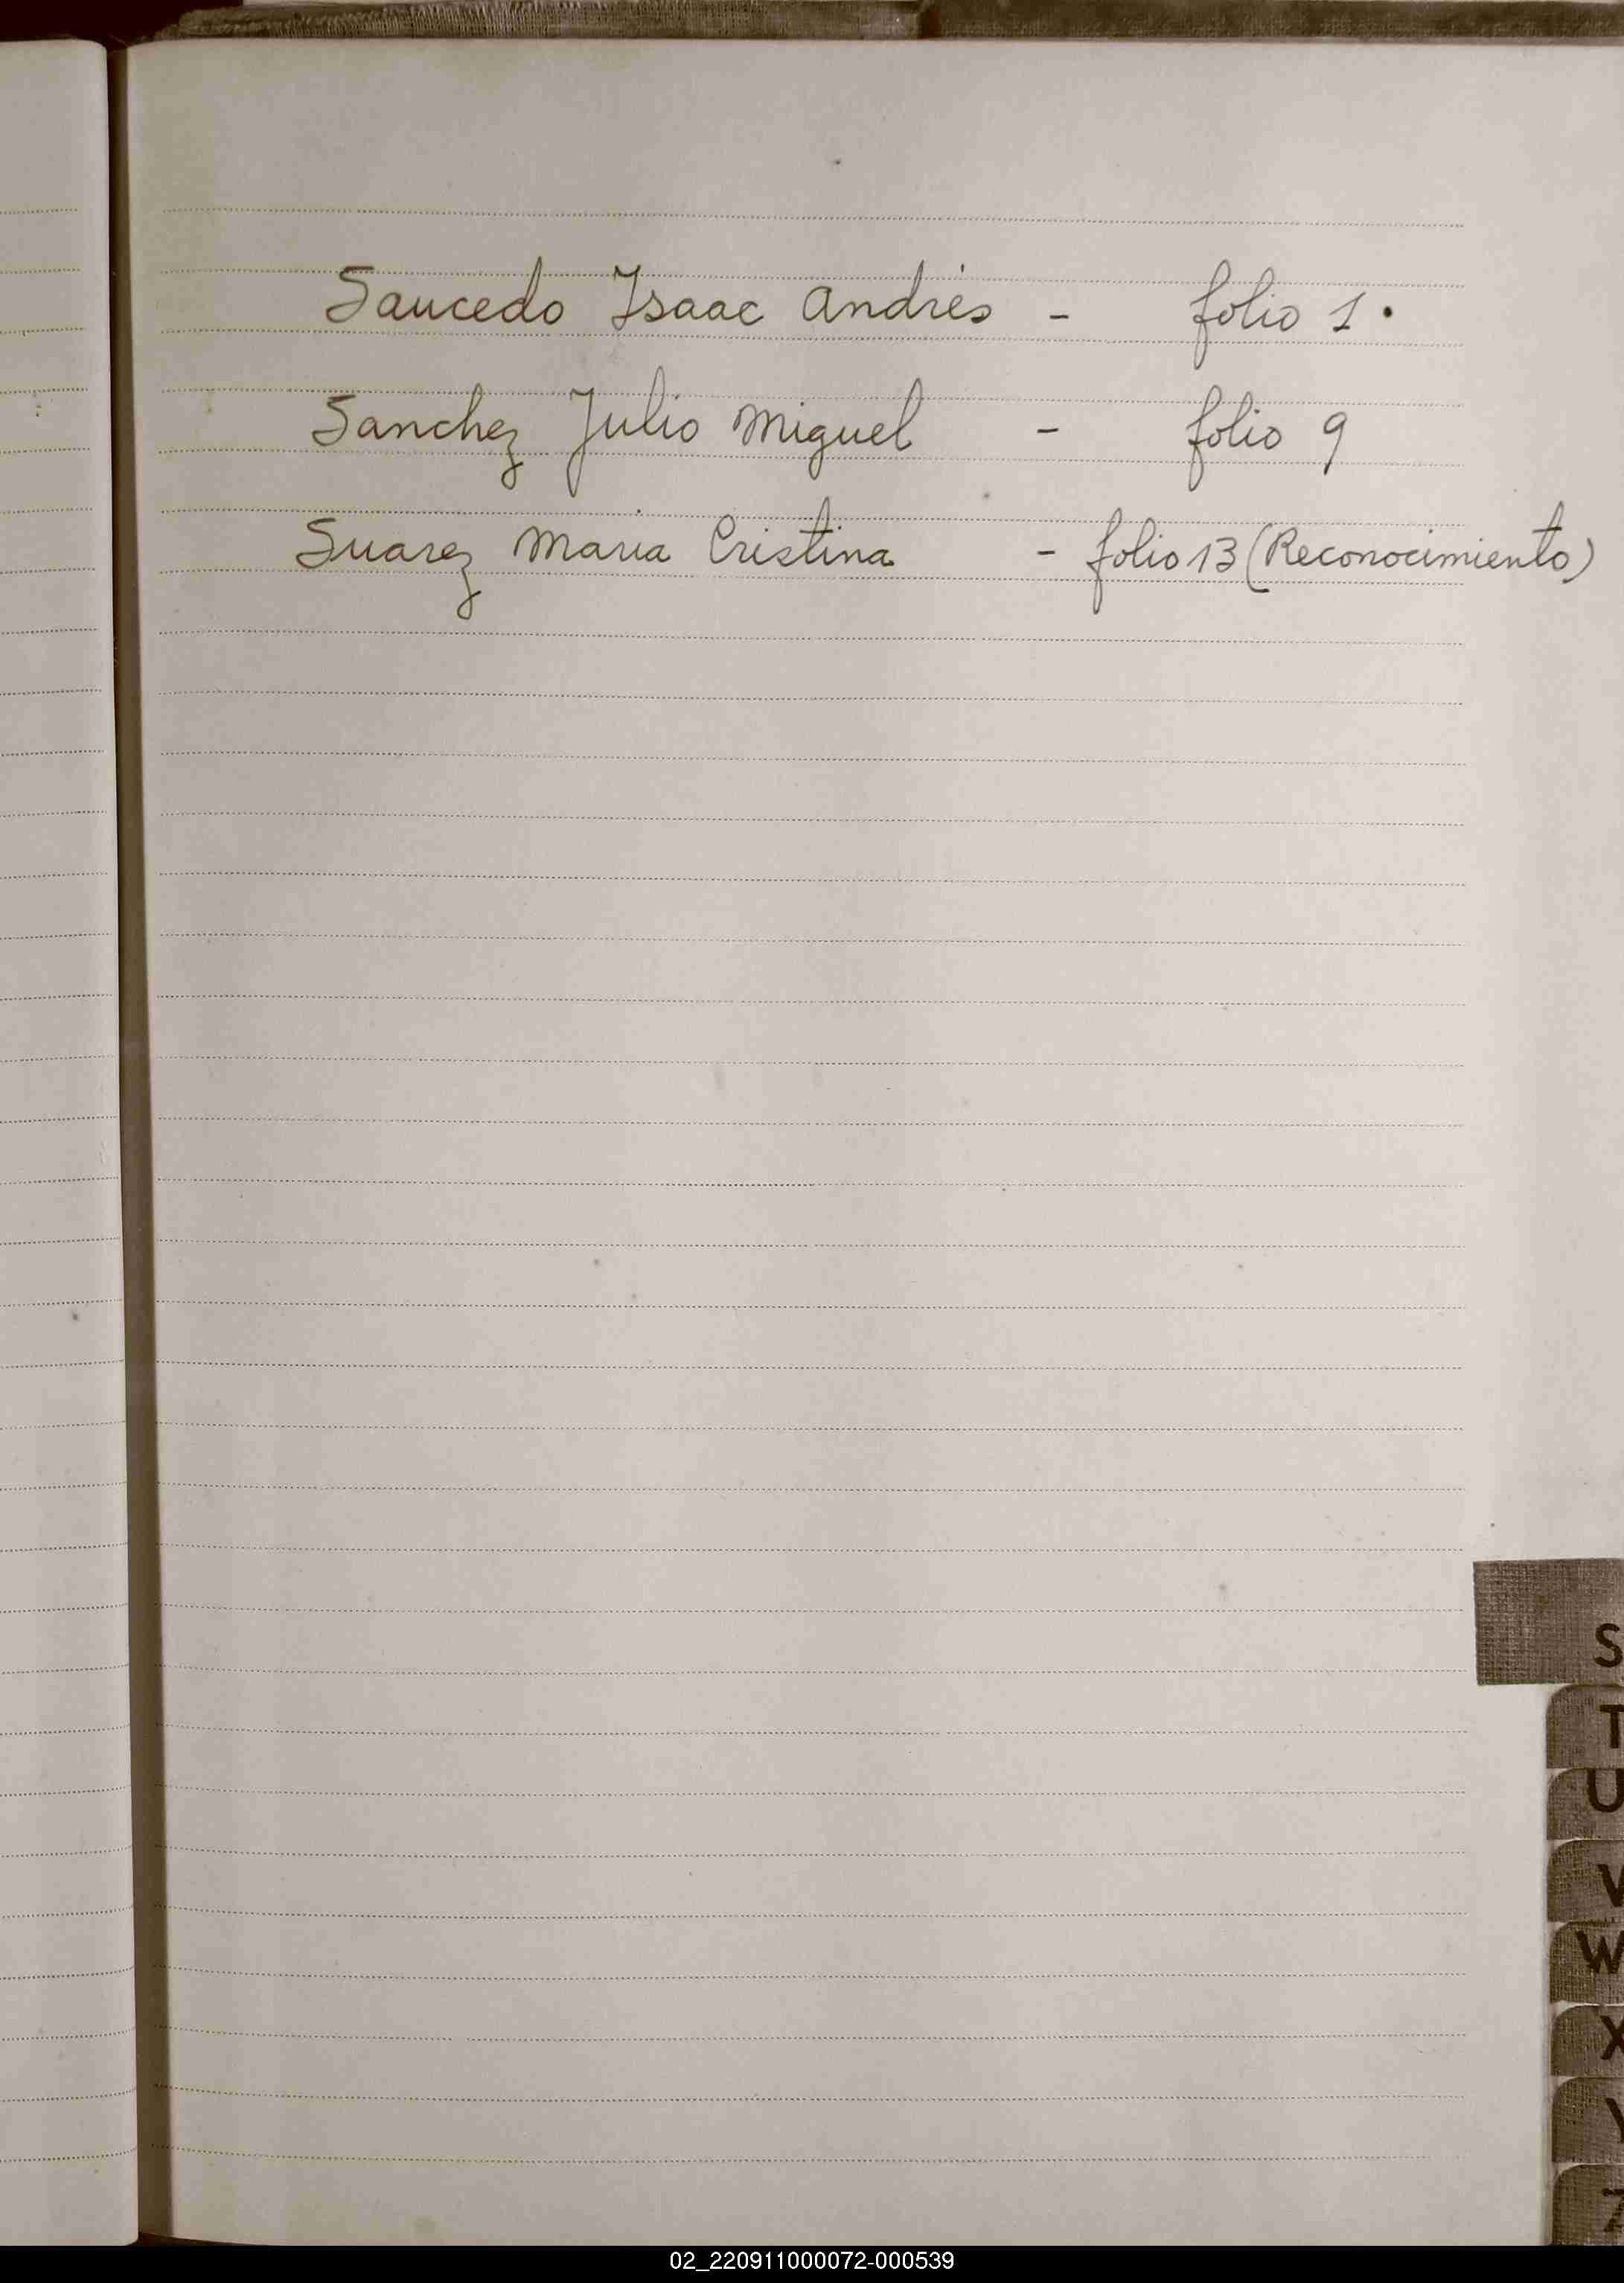 Saucedo Isaac Andrés - folio 1.
Sanchez Julio Miguel - folio 9
Suarez Maria Cristina - folio 13 (Reconocimiento)
S
T
U
V
W
X
Y
Z
02_220911000072-000539